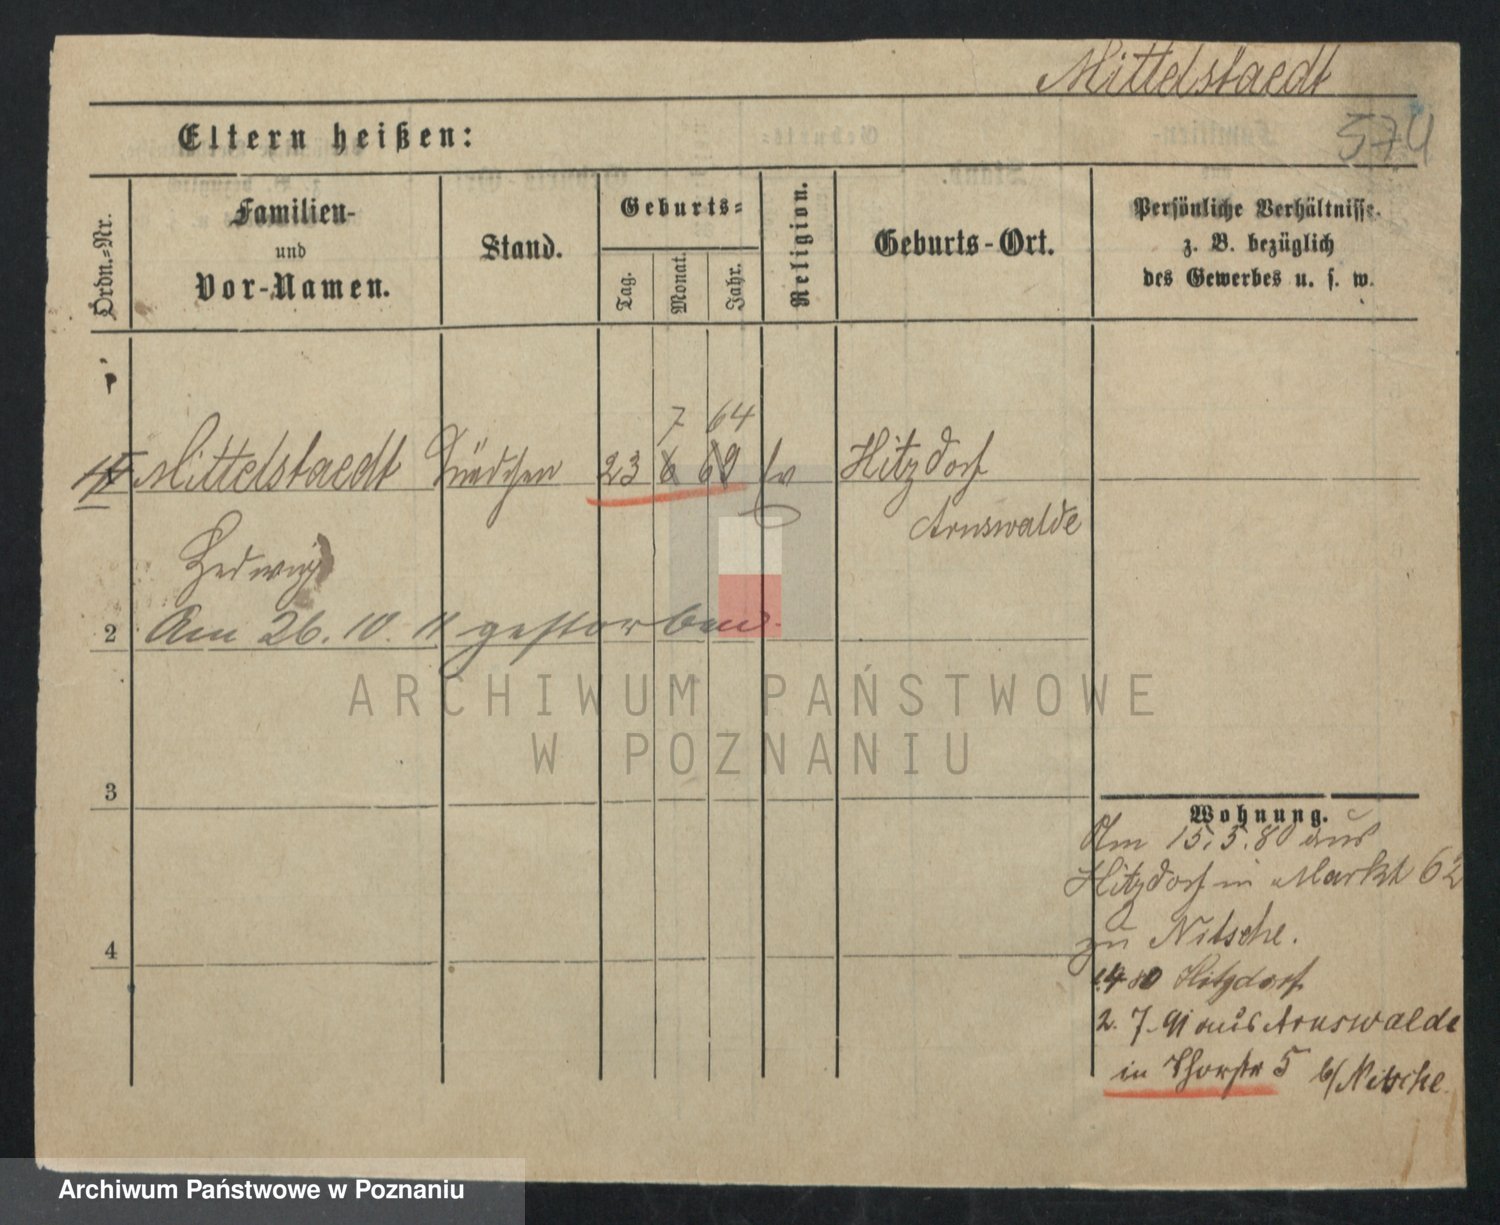 Mittelstaedt
574
Eltern heißen:
Ordn.=Nr.
Familien-
und
Vor-Namen.
Stand.
Geburts=
Tag.
Monat.
Jahr.
Religion.
Geburts-Ort.
Persönliche Verhältnisse.
z. B. bezüglich
des Gewerbes u. s. w.
7 64
Mittelstaedt 23 6 69 ev Hitzdorf
Arnswalde
Hedwig
2 Am 26. 10. 11 gestorben.
ARCHIWUM PAŃSTWOWE
W POZNANIU
3
Wohnung.
Am 15.5.80 aus
Hitzdorf in Markt 62
zu Nitsche.
4
80 Hitzdorf
2. 7. 91 aus Arnswalde
in Thorstr 5 b/ Nitsche.
Archiwum Państwowe w Poznaniu